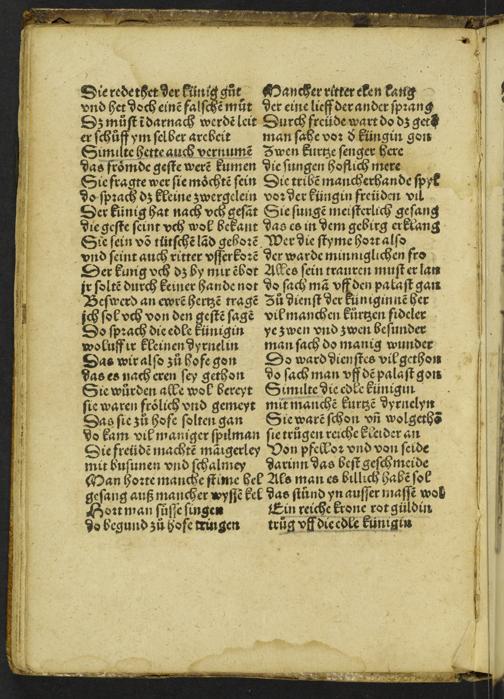 Die rede thet der künig gůt
vnd het doch einē falschē můt
Dz můst ē darnach werdē leit
er schůff ym selber arebeit
Similte hette auch vernumē
das frömde geste werē kumen
Sie fragte wer sie möchtē sein
do sprach dz kleine zwergelein
Der künig hat nach vch gesāt
die geste seint vch wol bekant
Sie sein vō tütschē lād geborē
vnd seint auch ritter vsserkorē
Der künig vch dz by mir ēbot
jr soltē durch keiner hande not
Beswerd an ewrē hertzē tragē
jch sol vch von den gestē sagē
Do sprach die edle künigin
woluff ir kleinen dyrnelin
Das wir also zů hofe gon
das es nach eren sey gethon
Sie würden alle wol bereyt
sie waren frölich vnd gemeyt
Das sie zů hofe solten gan
do kam vil maniger spilman
Die freüde machtē māigerley
mit busunen vnd schalmey
Man horte manche stime hel
gesang auß mancher wyssē kel
Hort man süsse singen
do begund zů hofe tringen
Mancher ritter elen lang
der eine lieff der ander sprang
Durch freüde wart do dz getō
man sahe vor d̄ küngin gon
Zwen kurtze senger here
die sungen hoflich mere
Die tribē mancherhande spyl
vor der küngin freüden vil
Sie sungē meisterlich gesang
das es in dem gebirg erklang
Wer die styme hort also
der warde minniglichen fro
Alles sein trauren must er lan
do sach mā vff den palast gan
Zů dienst der küniginnē her
vil manchen kürtzen fideler
ye zwen vnd zwen besunder
man sach do manig wunder
Do ward dienstes vil gethon
do sach man vff dē palast gon
Similte die edle künigin
mit manchē kurtzē dyrnelyn
Sie warē schon vñ wolgethō
sie trügen reiche kleider an
Von pfellor vnd von seide
darinn das best geschmeide
Als man es billich habē sol
das stünd yn ausser massē wol
Ein reiche krone rot güldin
trüg vff die edle künigin